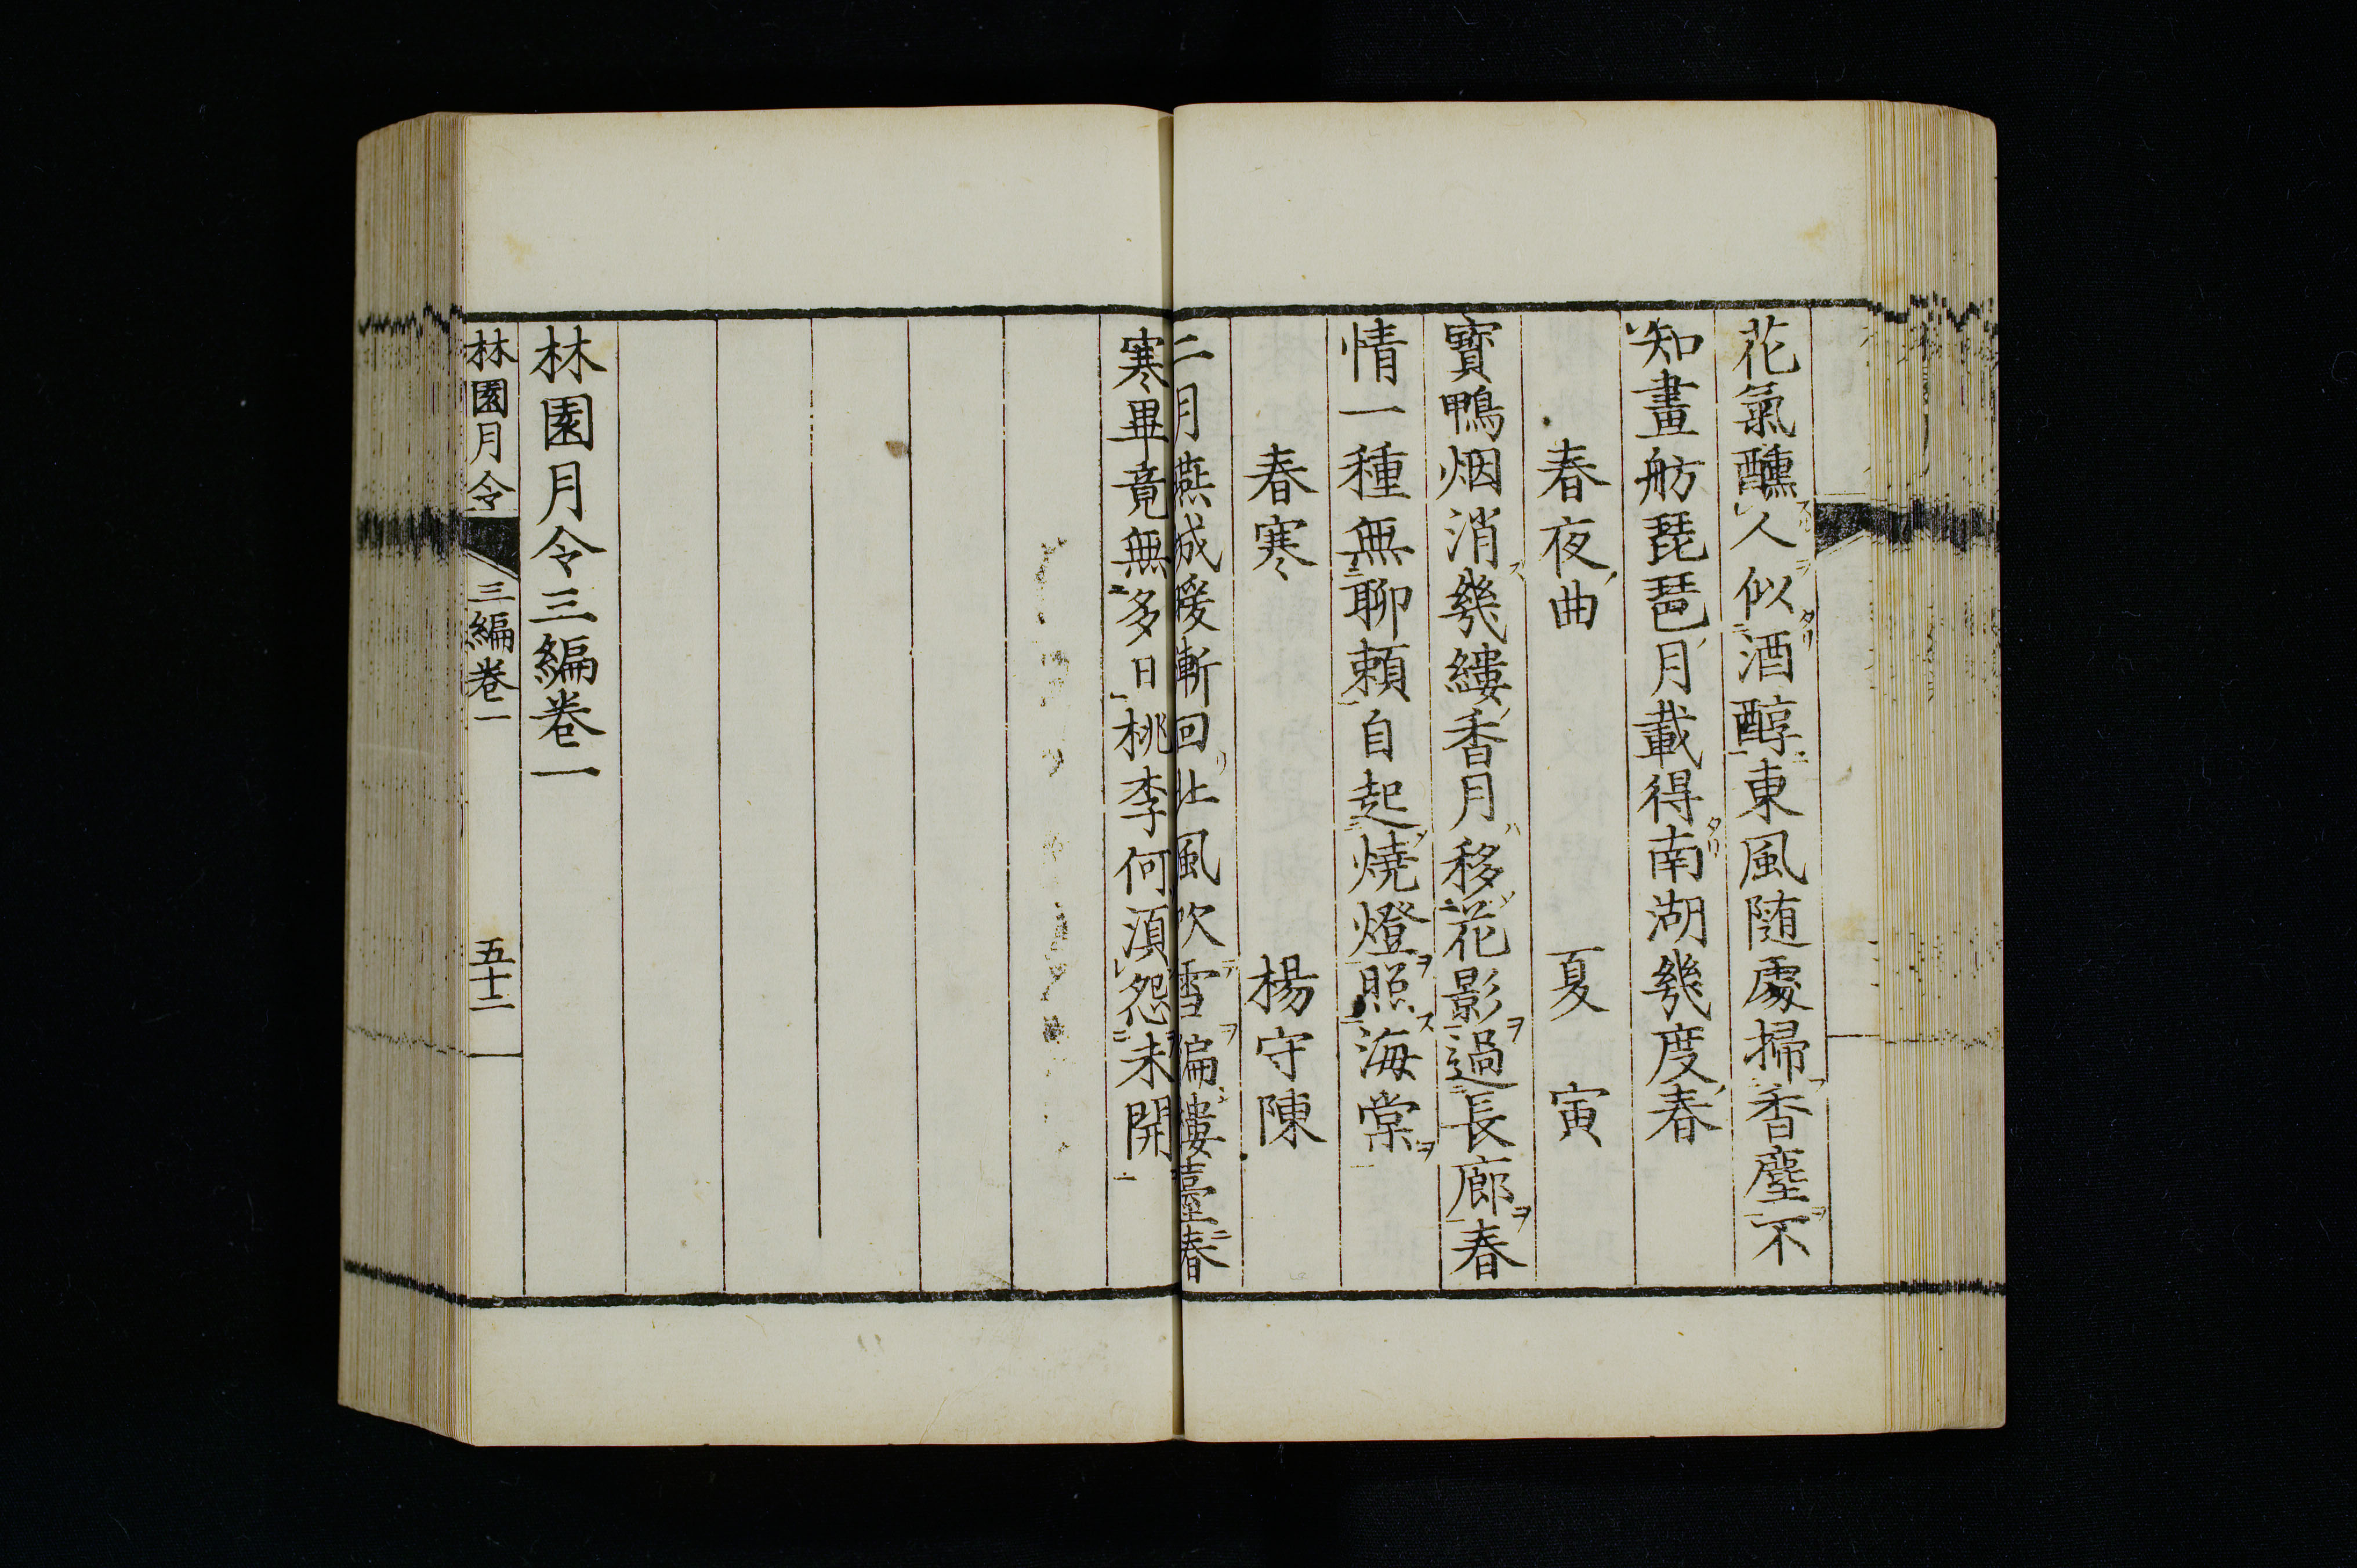 花氣醺人似酒醇東風随處掃香塵不
知畫舫琵琶月載得南湖幾度春
春夜曲　夏寅
寳鴨烟消幾縷香月移花影過長廊春
情一種無聊頼自起燒燈照海棠
春寒　楊守陳
二月燕城暖漸回北風吹雪徧樓臺春
寒畢竟無多日桃李何湏怨未開
林園月令三編巻一
林園月令　三編巻一　五十二